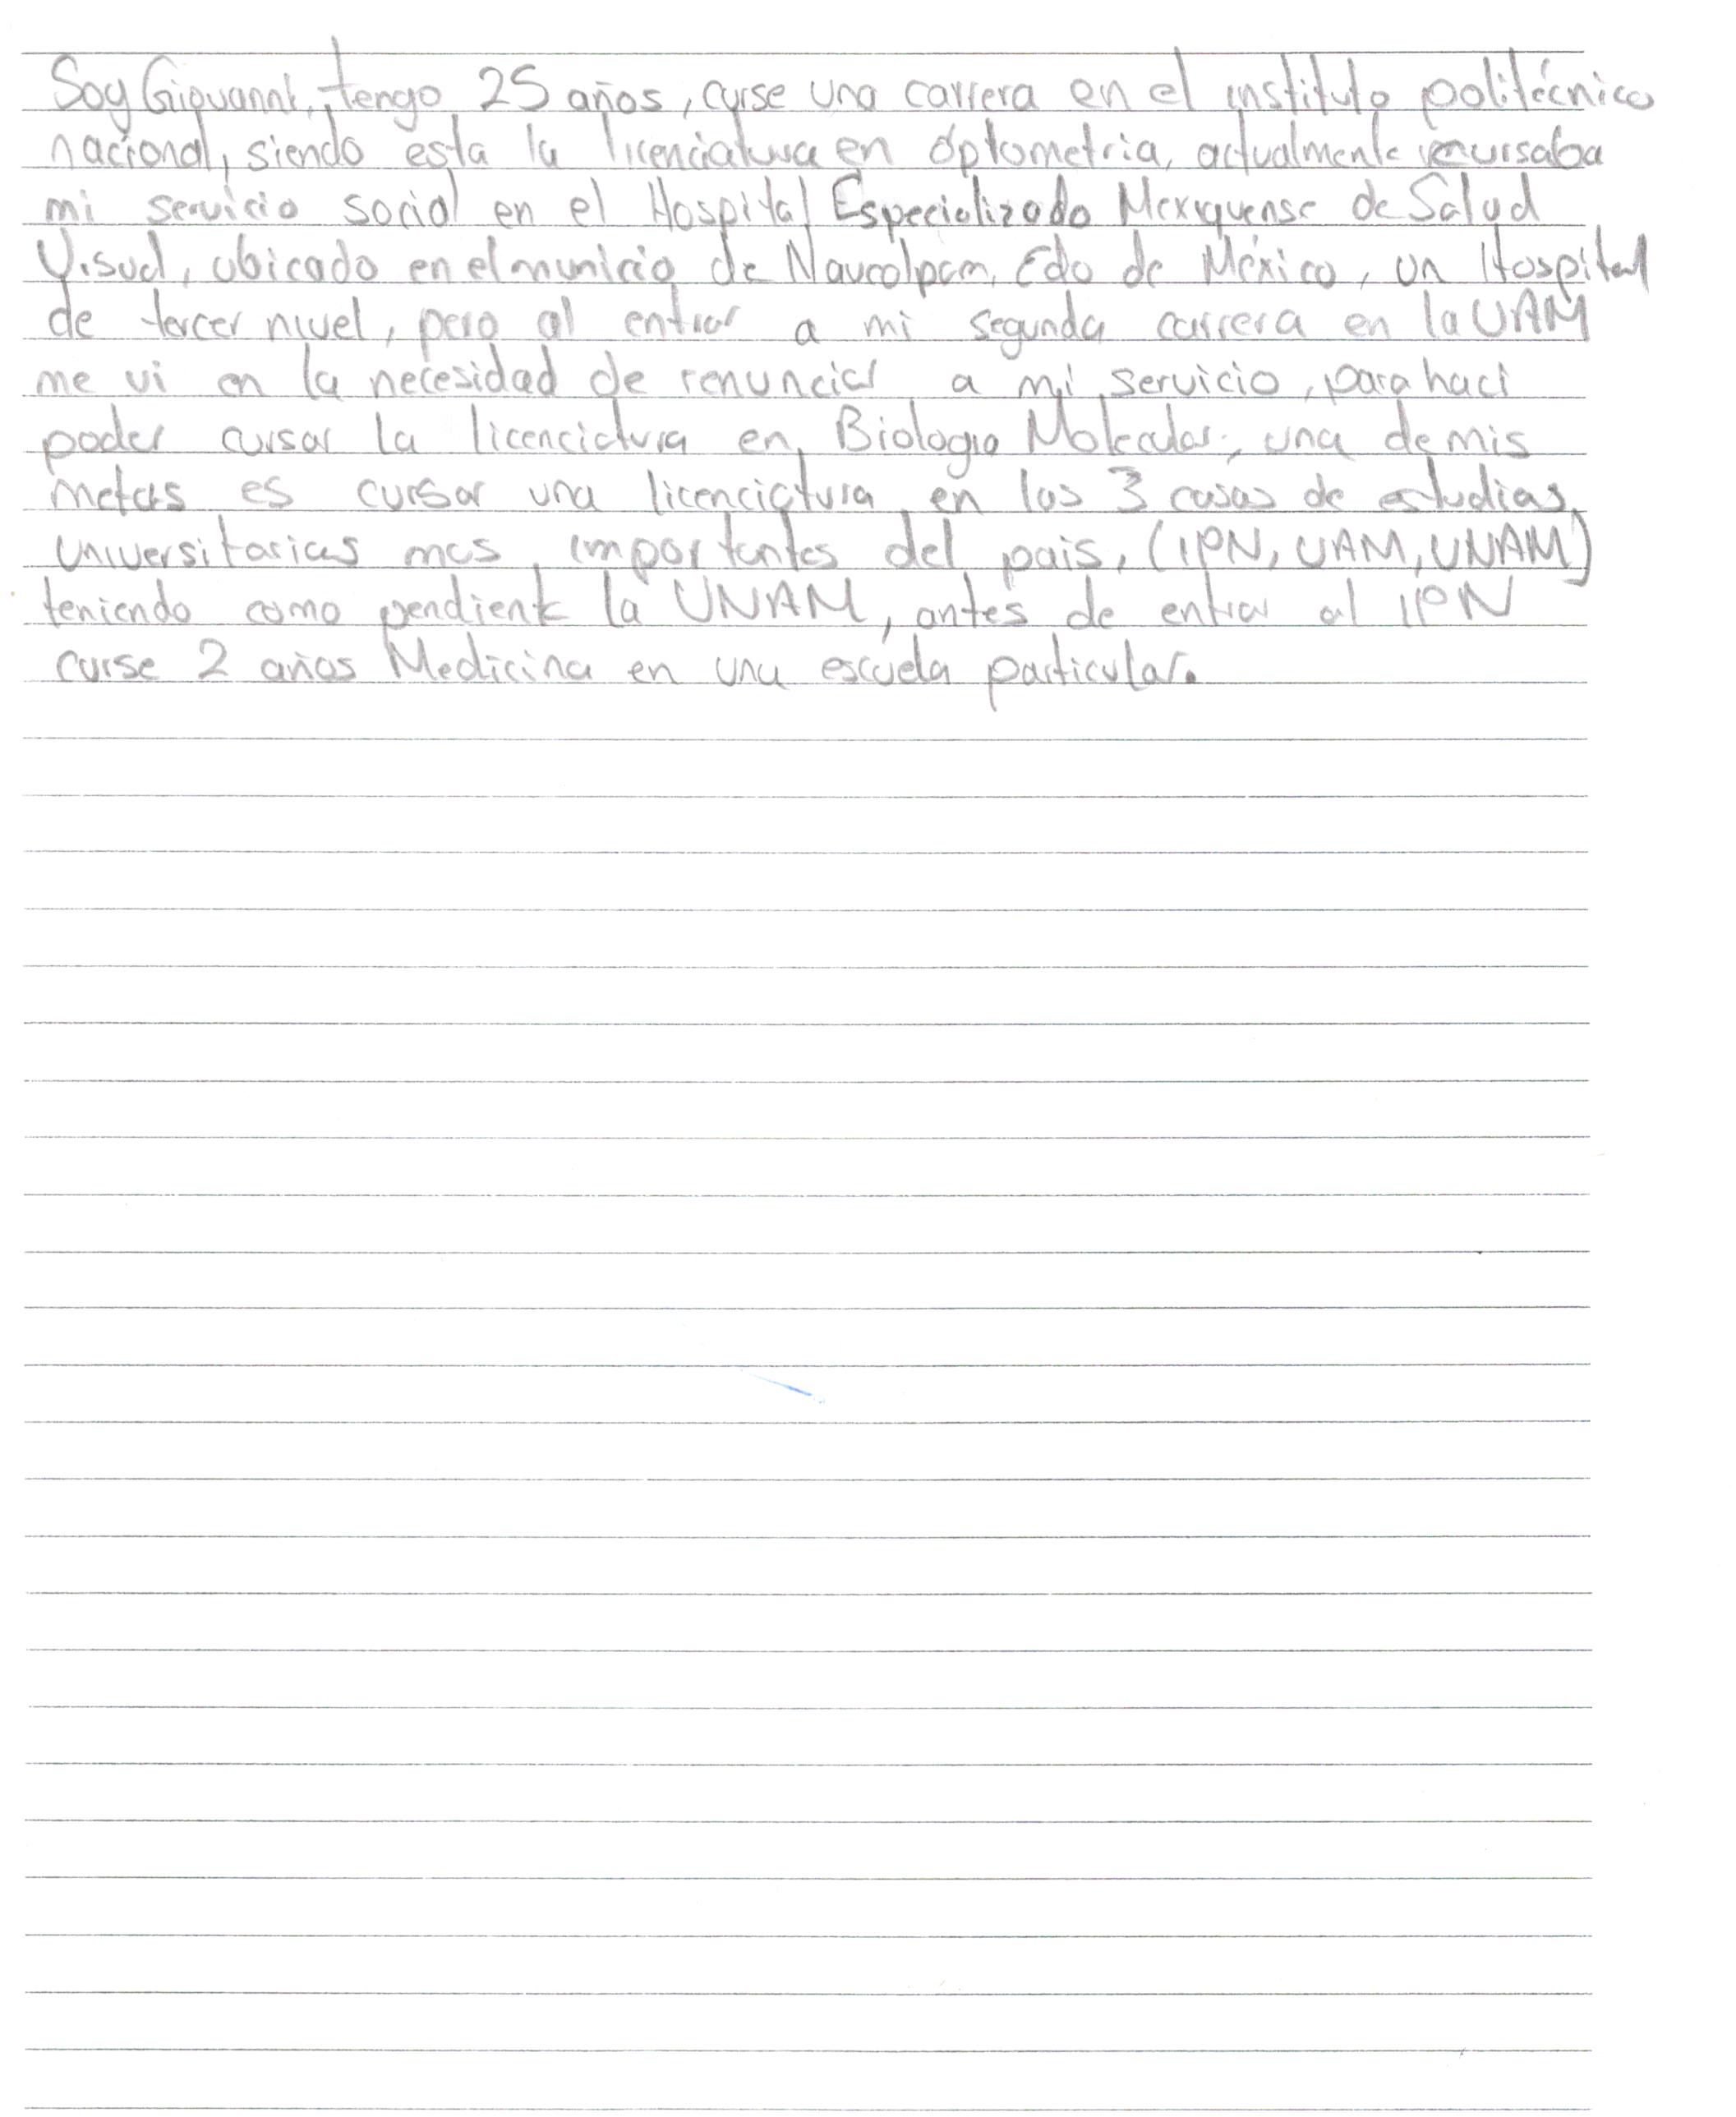 Soy Giovanni, tengo 25 años, curse una carrera en el instituto politécnico
nacional, siendo esta la licenciatura en optometria, actualmente cursaba
mi servicio social en el Hospital Especializado Mexiquense de Salud
Visual, ubicado en el municio de Naucalpan, Edo de México, un Hospital
de tercer nivel, pero al entrar a mi segunda carrera en la UAM
me vi en la necesidad de renunciar a mi servicio, para haci
poder cursar la licenciatura en Biologia Molecular, una de mis
metas es cursar una licenciatura en las 3 casas de estudias
universitarias mas importantes del pais, (IPN, UAM, UNAM)
teniendo como pendiente la UNAM, antes de entrar al IPN
curse 2 años Medicina en una escuela particular.